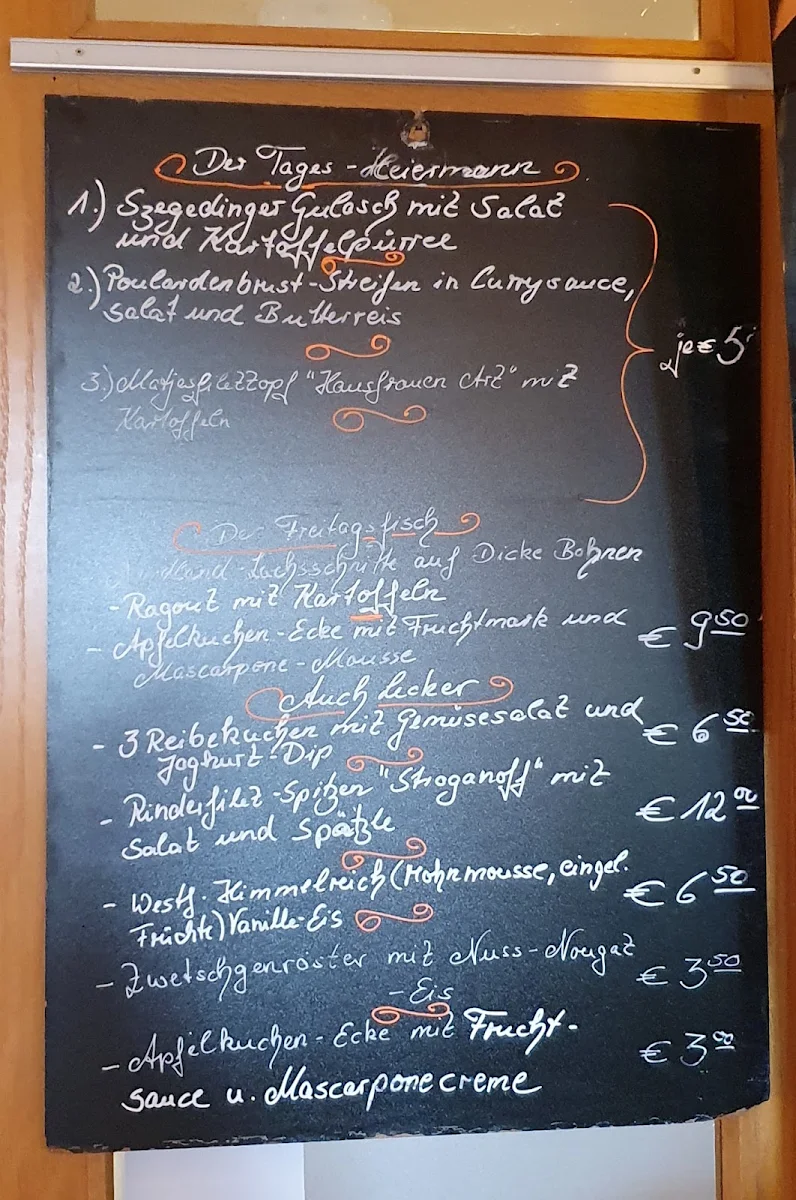 Der Tages-Heiermann
1.) Szegediner Gulasch mit Salat
und Kartoffelpürree
2.) Poulardenbrust-Streifen in Currysauce,
Salat und Butterreis
je € 5,
3.) Matjesfiletzopf "Hausfrauen Art" mit
Kartoffeln
Der Freitagsfisch
-Lachsschnitte auf Dicke Bohnen
-Ragout mit Kartoffeln
- Apfelkuchen-Ecke mit Fruchtmark und € 9 50
Mascarpone-Mousse
Auch Lecker
- 3 Reibekuchen mit Gemüsesalat und € 6 50
Joghurt-Dip
- Rinderfilet-Spitzen "Stroganoff" mit € 12 00
Salat und Spätzle
- Westf. Himmelreich (Mohnmousse, eingel. € 6 50
Früchte) Vanille-Eis
- Zwetschgenröster mit Nuss-Nougat € 3 50
-Eis
- Apfelkuchen-Ecke mit Frucht- € 3 00
sauce u. Mascarponecreme